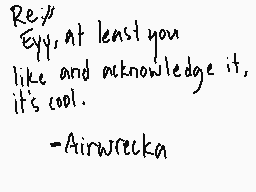 Re://
Eyy, at least you
like and acknowledge it,
it's cool.
-Airwrecka